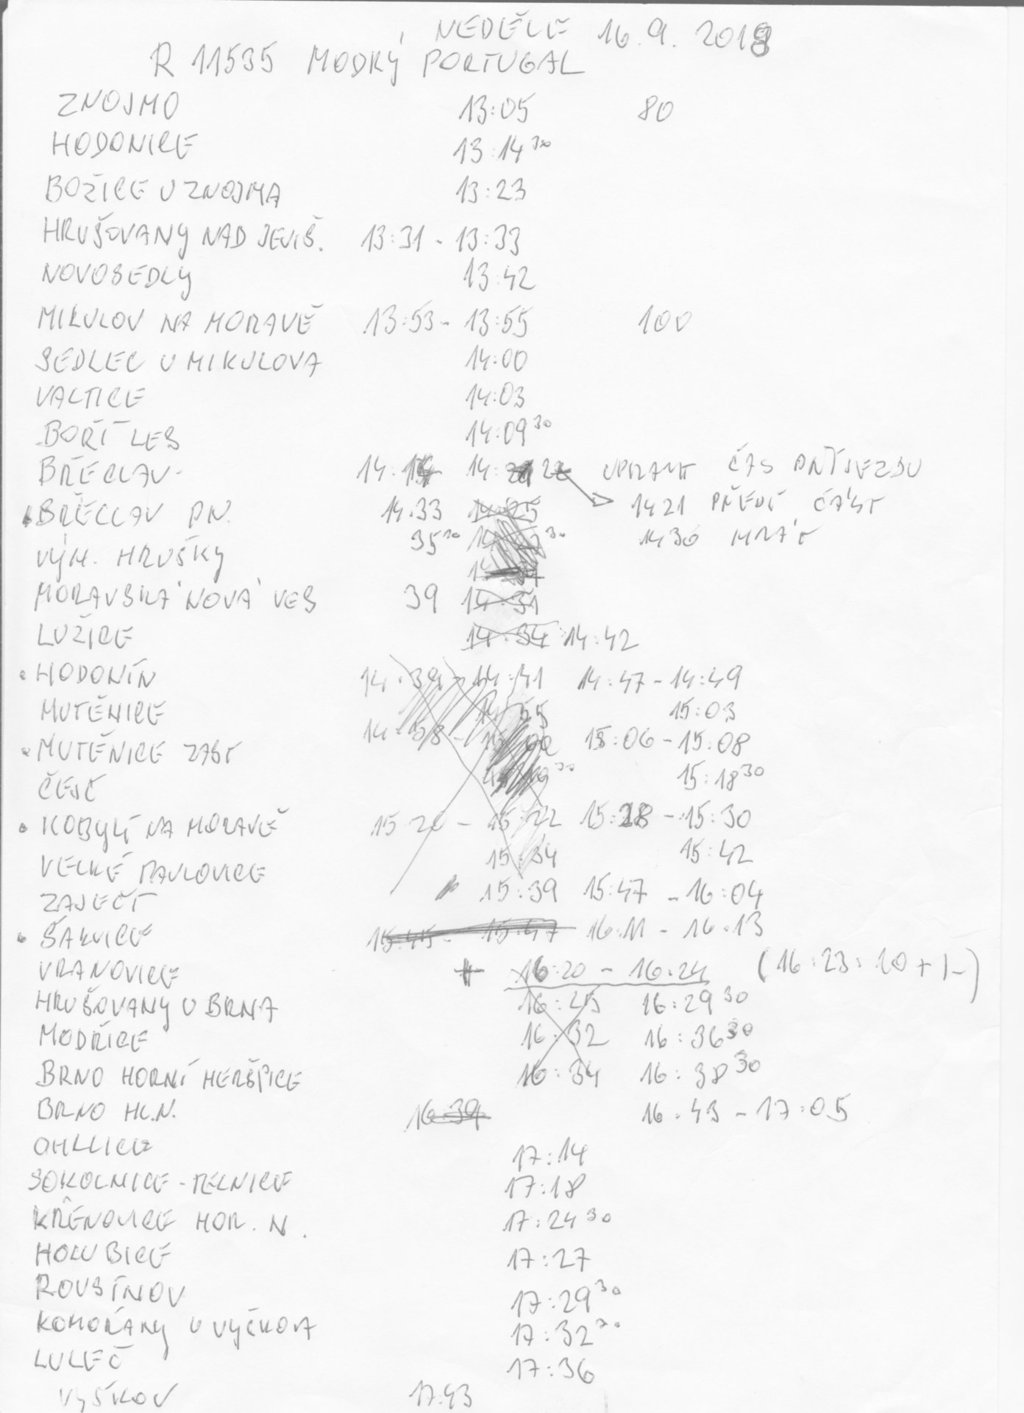 NEDĚLE 16.9.2018
R 11535 MODRÝ PORTUGAL
ZNOJMO 13:05 80
HODONICE 13:14 30
BOŽICE U ZNOJMA 13:23
HRUŠOVANY NAD JEVIŠ. 13:31 - 13:33
NOVOSEDLY 13:42
MIKULOV NA MORAVĚ 13:53 - 13:55 100
SEDLEC U MIKULOVA 14:00
VALTICE 14:03
BOŘÍ LES 14:09 30
BŘECLAV 14: 14: 22 UPRAVIT ČAS PŘÍJEZDU
BŘECLAV PŘ. 14:33 14:25 1421 PŘEDÉ ČÁST
VÝH. HRUŠKY 35 30 1430
MORAVSKÁ NOVÁ VES 39 14:31
LUŽICE 14:34 14:42
HODONÍN 14:39 - 14:41 14:47 - 14:49
MUTĚNICE 14:55 15:03
MUTĚNICE ZAST 14:58 - 15:00 15:06 - 15:08
ČEJČ 15:18 30
KOBYLÍ NA MORAVĚ 15:20 - 15:22 15:28 - 15:30
VELKÉ PAVLOVICE 15:34 15:42
ZAJEČÍ 15:39 15:47 - 16:04
ŠAKVICE 15:45 - 15:47 16:11 - 16:13
VRANOVICE 16:20 - 16:24 (16:23:20 +/-)
HRUŠOVANY U BRNA 16:25 16:29 30
MODŘICE 16:32 16:36 30
BRNO HORNÍ HERŠPICE 16:34 16:38 30
BRNO HL.N. 16:39 16:43 - 17:05
CHRLICE 17:14
SOKOLNICE - TELNICE 17:18
KŘENOVICE HOR. N. 17:24 30
HOLUBICE 17:27
ROUSÍNOV 17:29 30
KOMOŘANY U VYŠKOVA 17:32 30
LULEČ 17:36
VYŠKOV 17:43